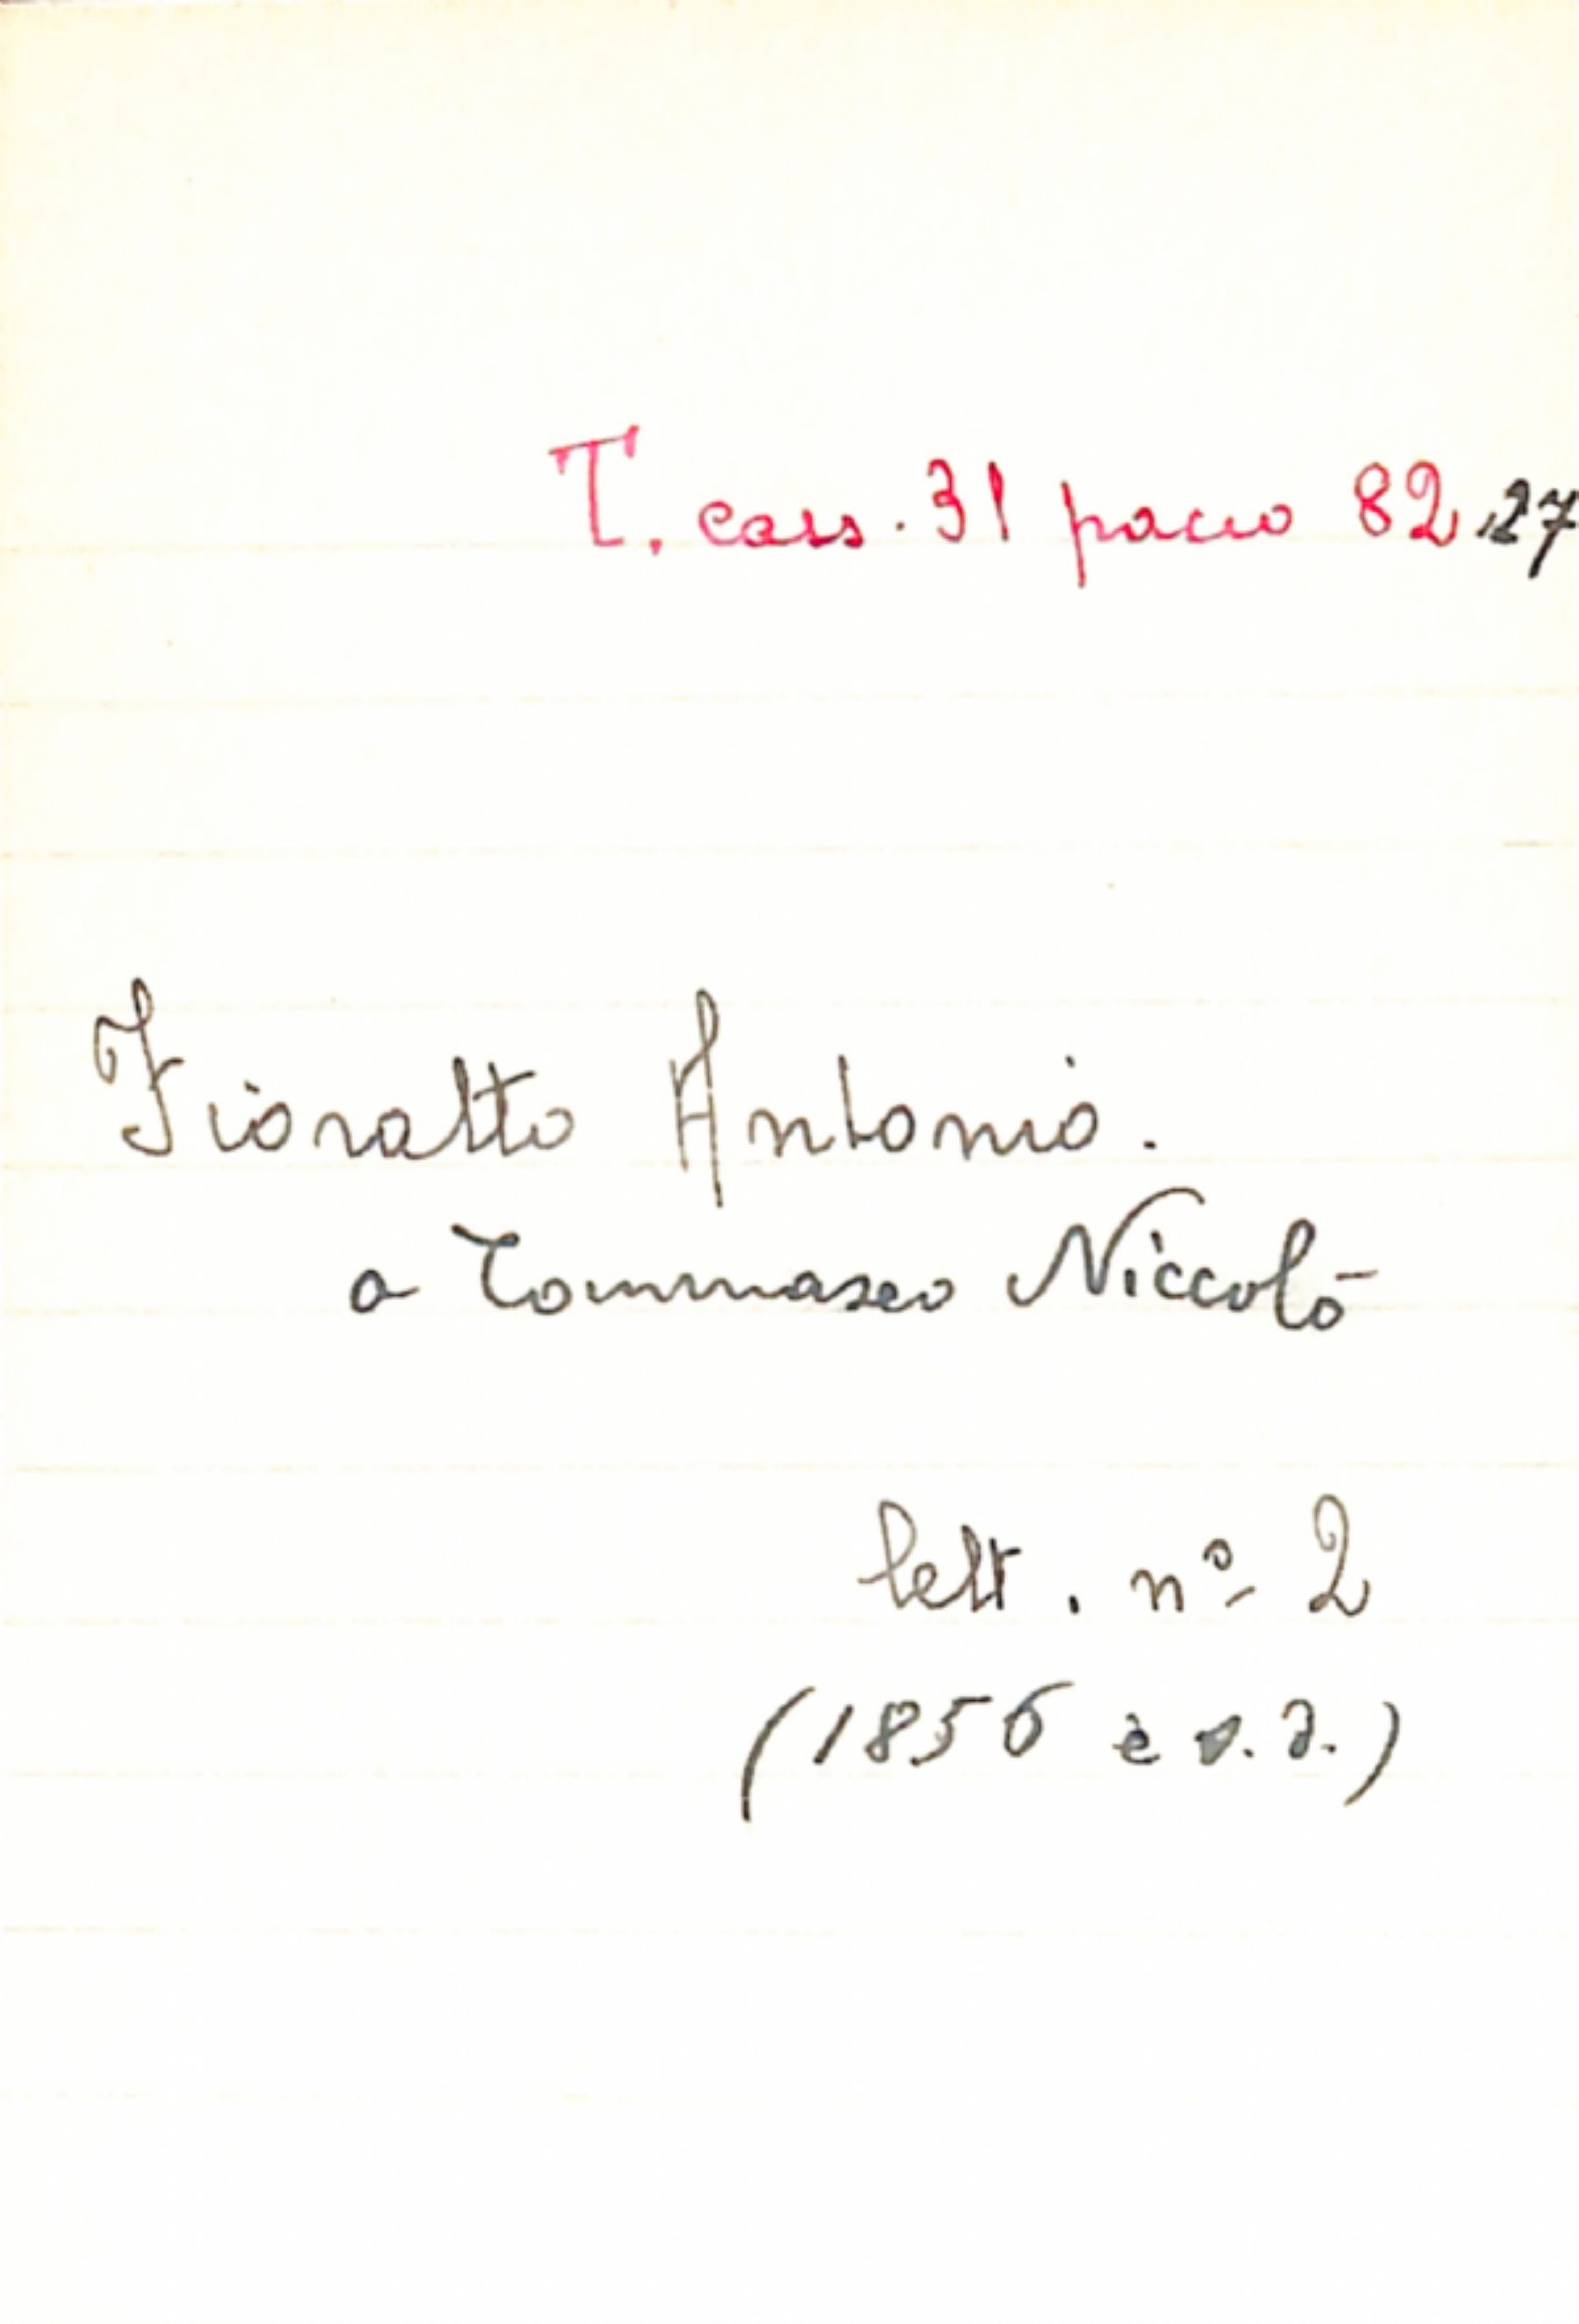 T. cass. 31 pacco 82,27
Fioratto Antonio.
a Tommaseo Niccolò
lett. nº 2
(1856 e s.d.)